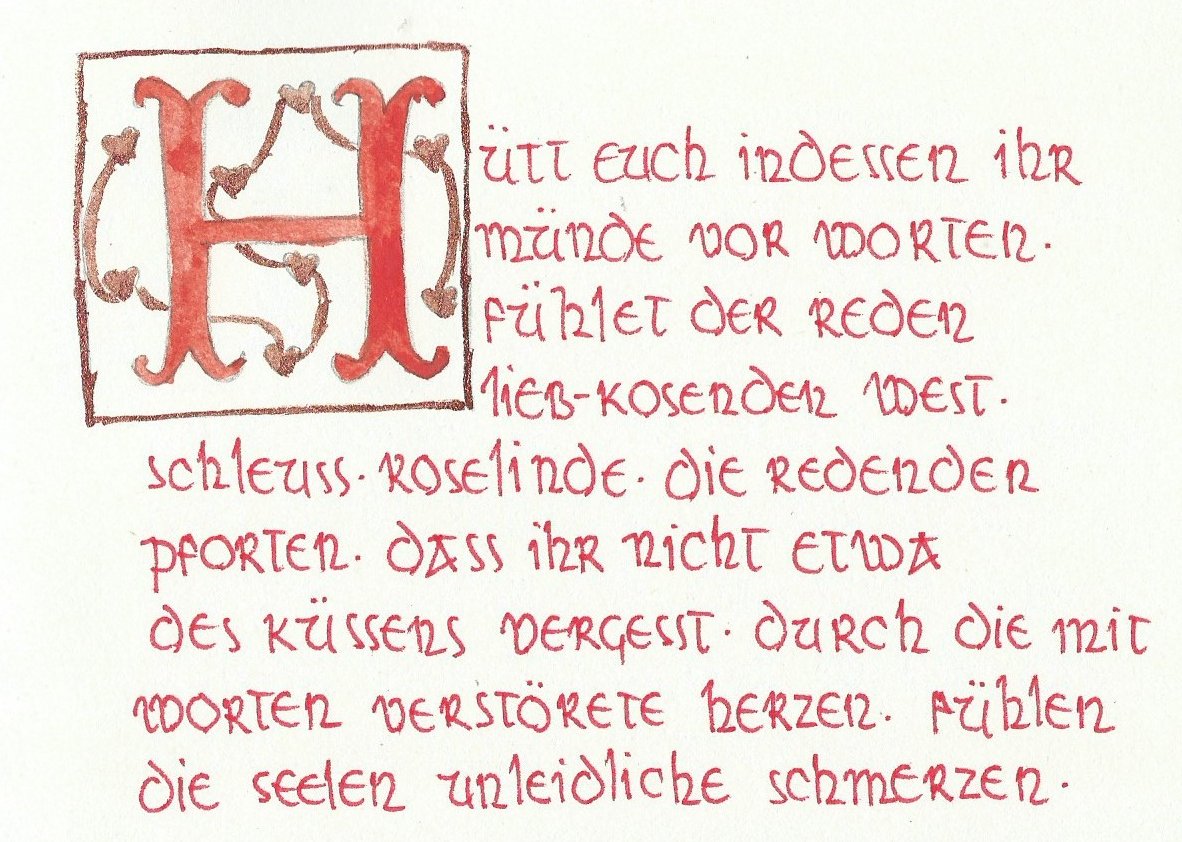 Hütt euch indessen ihr
münde vor worten.
fühlet der reden
lieb-kosenden west.
schleuss. roselinde. die redenden
pforten. dass ihr nicht etwa
des küssens vergesst. durch die mit
worten verstörete herzen. fühlen
die seelen unleidliche schmerzen.